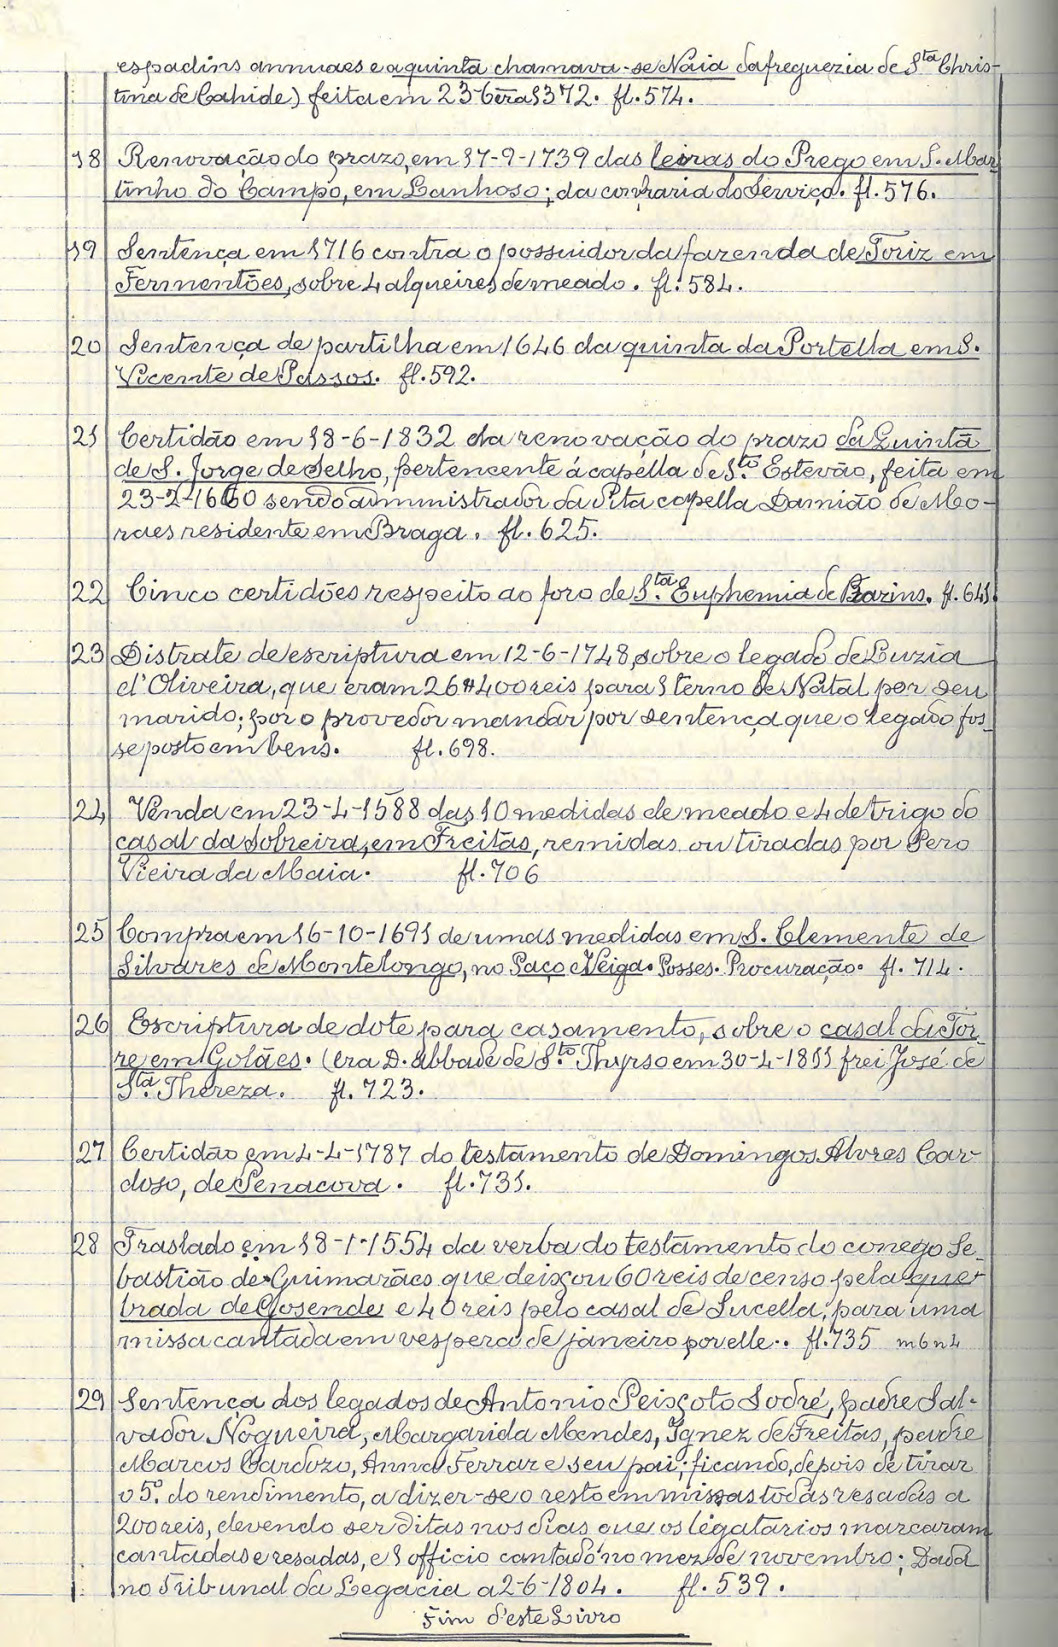 espadins annuaes e a quintã chamava-se Naia da freguezia de Sta Chris-
tina de Cahide) feita em 23-6-era 1372. fl. 574.
18 Renovação do prazo, em 17-9-1739 das leiras do Prego em S. Mar
tinho do Campo, em Lanhoso; da confraria do Serviço. fl. 576.
19 Sentença em 1716 contra o possuidor da fazenda de Toriz em
Fermentões, sobre 4 alqueires de meado. fl. 584.
20 Sentença de partilha em 1646 da quinta da Portella em S.
Vicente de Passos. fl. 592.
21 Certidão em 18-6-1832 da renovação do prazo da Quintã
de S. Jorge de Selho, pertencente á capélla de Sto. Estevão, feita em
23-2-1660 sendo administrador da dita capella Damião de Mo-
raes residente em Braga. fl. 625.
22 Cinco certidões respeito ao foro de Sta. Euphemia de Prazins. fl. 641.
23 Distrate de escriptura em 12-6-1748, sobre o legado de Luzia
d'Oliveira, que eram 26#400 reis para 1 terno de Natal por seu
marido; por o provedor mandar por sentença que o legado fos_
se posto em bens. fl. 698.
24 Venda em 23-4-1588 das 10 medidas de meado e 4 de trigo do
casal da Sobreira, em Freitas, remidas ou tiradas por Pero
Vieira da Maia. fl. 706
25 Compra em 16-10-1691 de umas medidas em S. Clemente de
Silvares de Montelongo, no Paço e Veiga. Posses. Procuração. fl. 714.
26 Escriptura de dote para casamento, sobre o casal da Tor_
re em Golães. (era D. Abbade de Sto. Thyrso em 30-4-1811 frei José de
Sta. Thereza. fl. 723.
27 Certidão em 4-4-1787 do testamento de Domingos Alvres Car-
doso, de Penacova. fl. 731.
28 Traslado em 18-1-1554 da verba do testamento do conego Se_
bastião de Guimarães que deixou 60 reis de censo pela que_
brada de Gosende e 40 reis pelo casal de Lucella, para uma
missa cantada em vespera de janeiro por elle.. fl. 735 m6n4
29 Sentença dos legados de Antonio Peixoto Sodré, padre Sal-
vador Nogueira, Margarida Mendes, Ignez de Freitas, padre
Marcos Cardozo, Anna Ferraz e seu pai; ficando, depois de tirar
o 5º. do rendimento, a dizer-se o resto em missas todas resadas a
200 reis, devendo ser ditas nos dias que os legatarios marcaram
cantadas e resadas, e 1 officio cantado no mez de novembro; Dada
no Tribunal da Legacia a 2-6-1804. fl. 539.
Fim d'este Livro